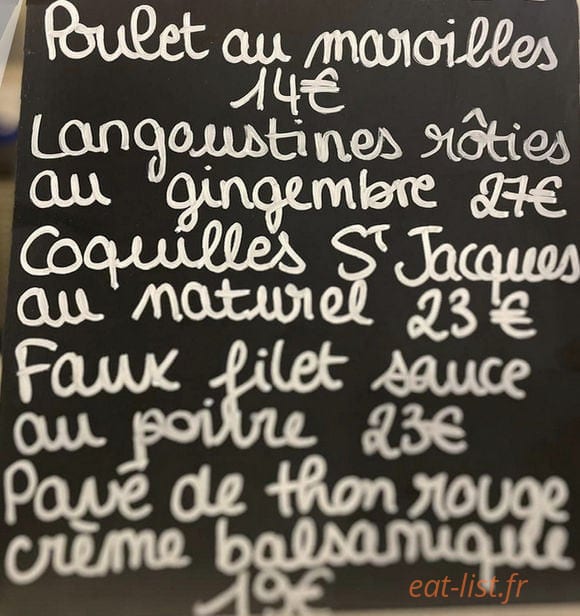 Poulet au maroilles
14€
Langoustines rôties
au gingembre 27€
Coquilles St Jacques
au naturel 23€
Faux filet sauce
au poivre 23€
Pavé de thon rouge
crème balsamique
19€
eat-list.fr